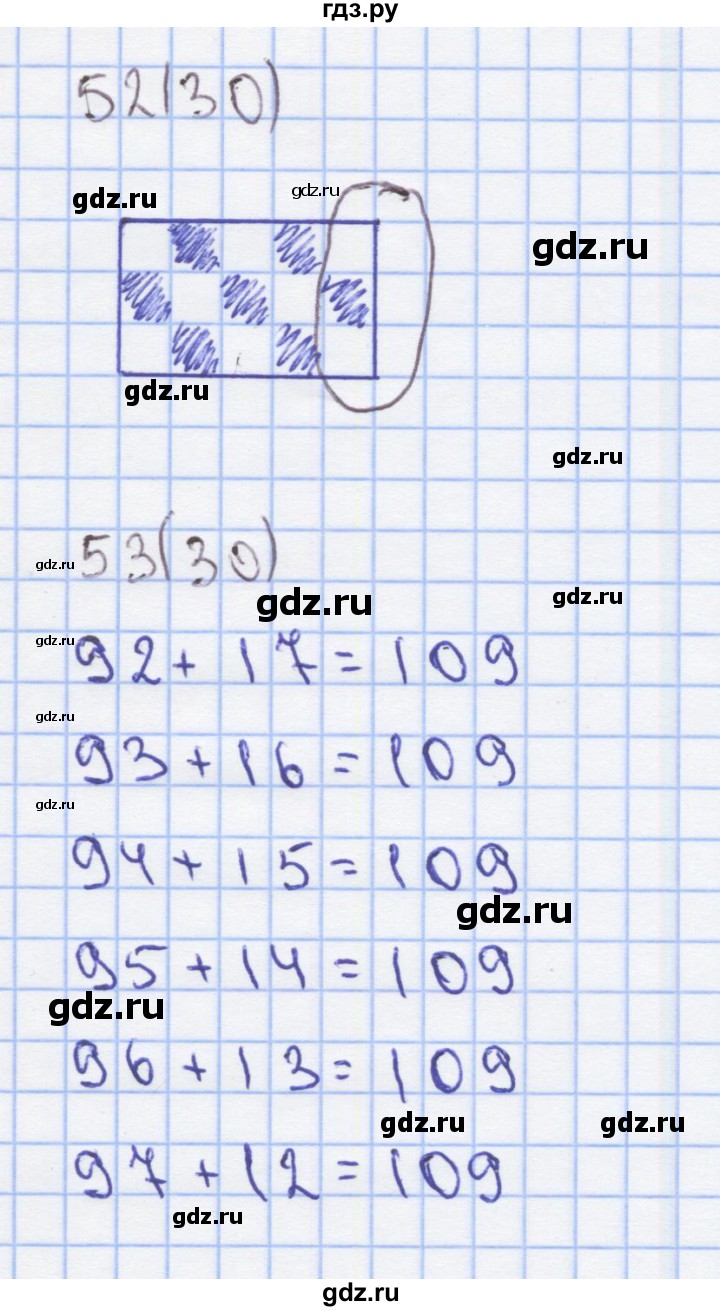 гдз.ру
52(30)
gdz.ru
gdz.ru
gdz.ru
gdz.ru
gdz.ru
53(30)
gdz.ru
gdz.ru
gdz.ru
gdz.ru
92+17=109
gdz.ru
93+16=109
gdz.ru
94+15=109
gdz.ru
95+14=109
gdz.ru
96+13=109
gdz.ru
gdz.ru
97+12=109
gdz.ru
gdz.ru